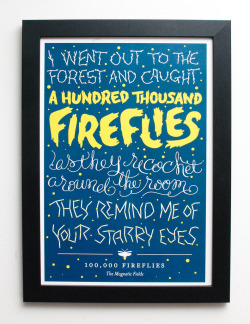 I WENT OUT TO THE
FOREST AND CAUGHT
A HUNDRED THOUSAND
FIREFLIES
as they ricochet
around the room
THEY REMIND ME OF
YOUR STARRY EYES
100,000 FIREFLIES
The Magnetic Fields